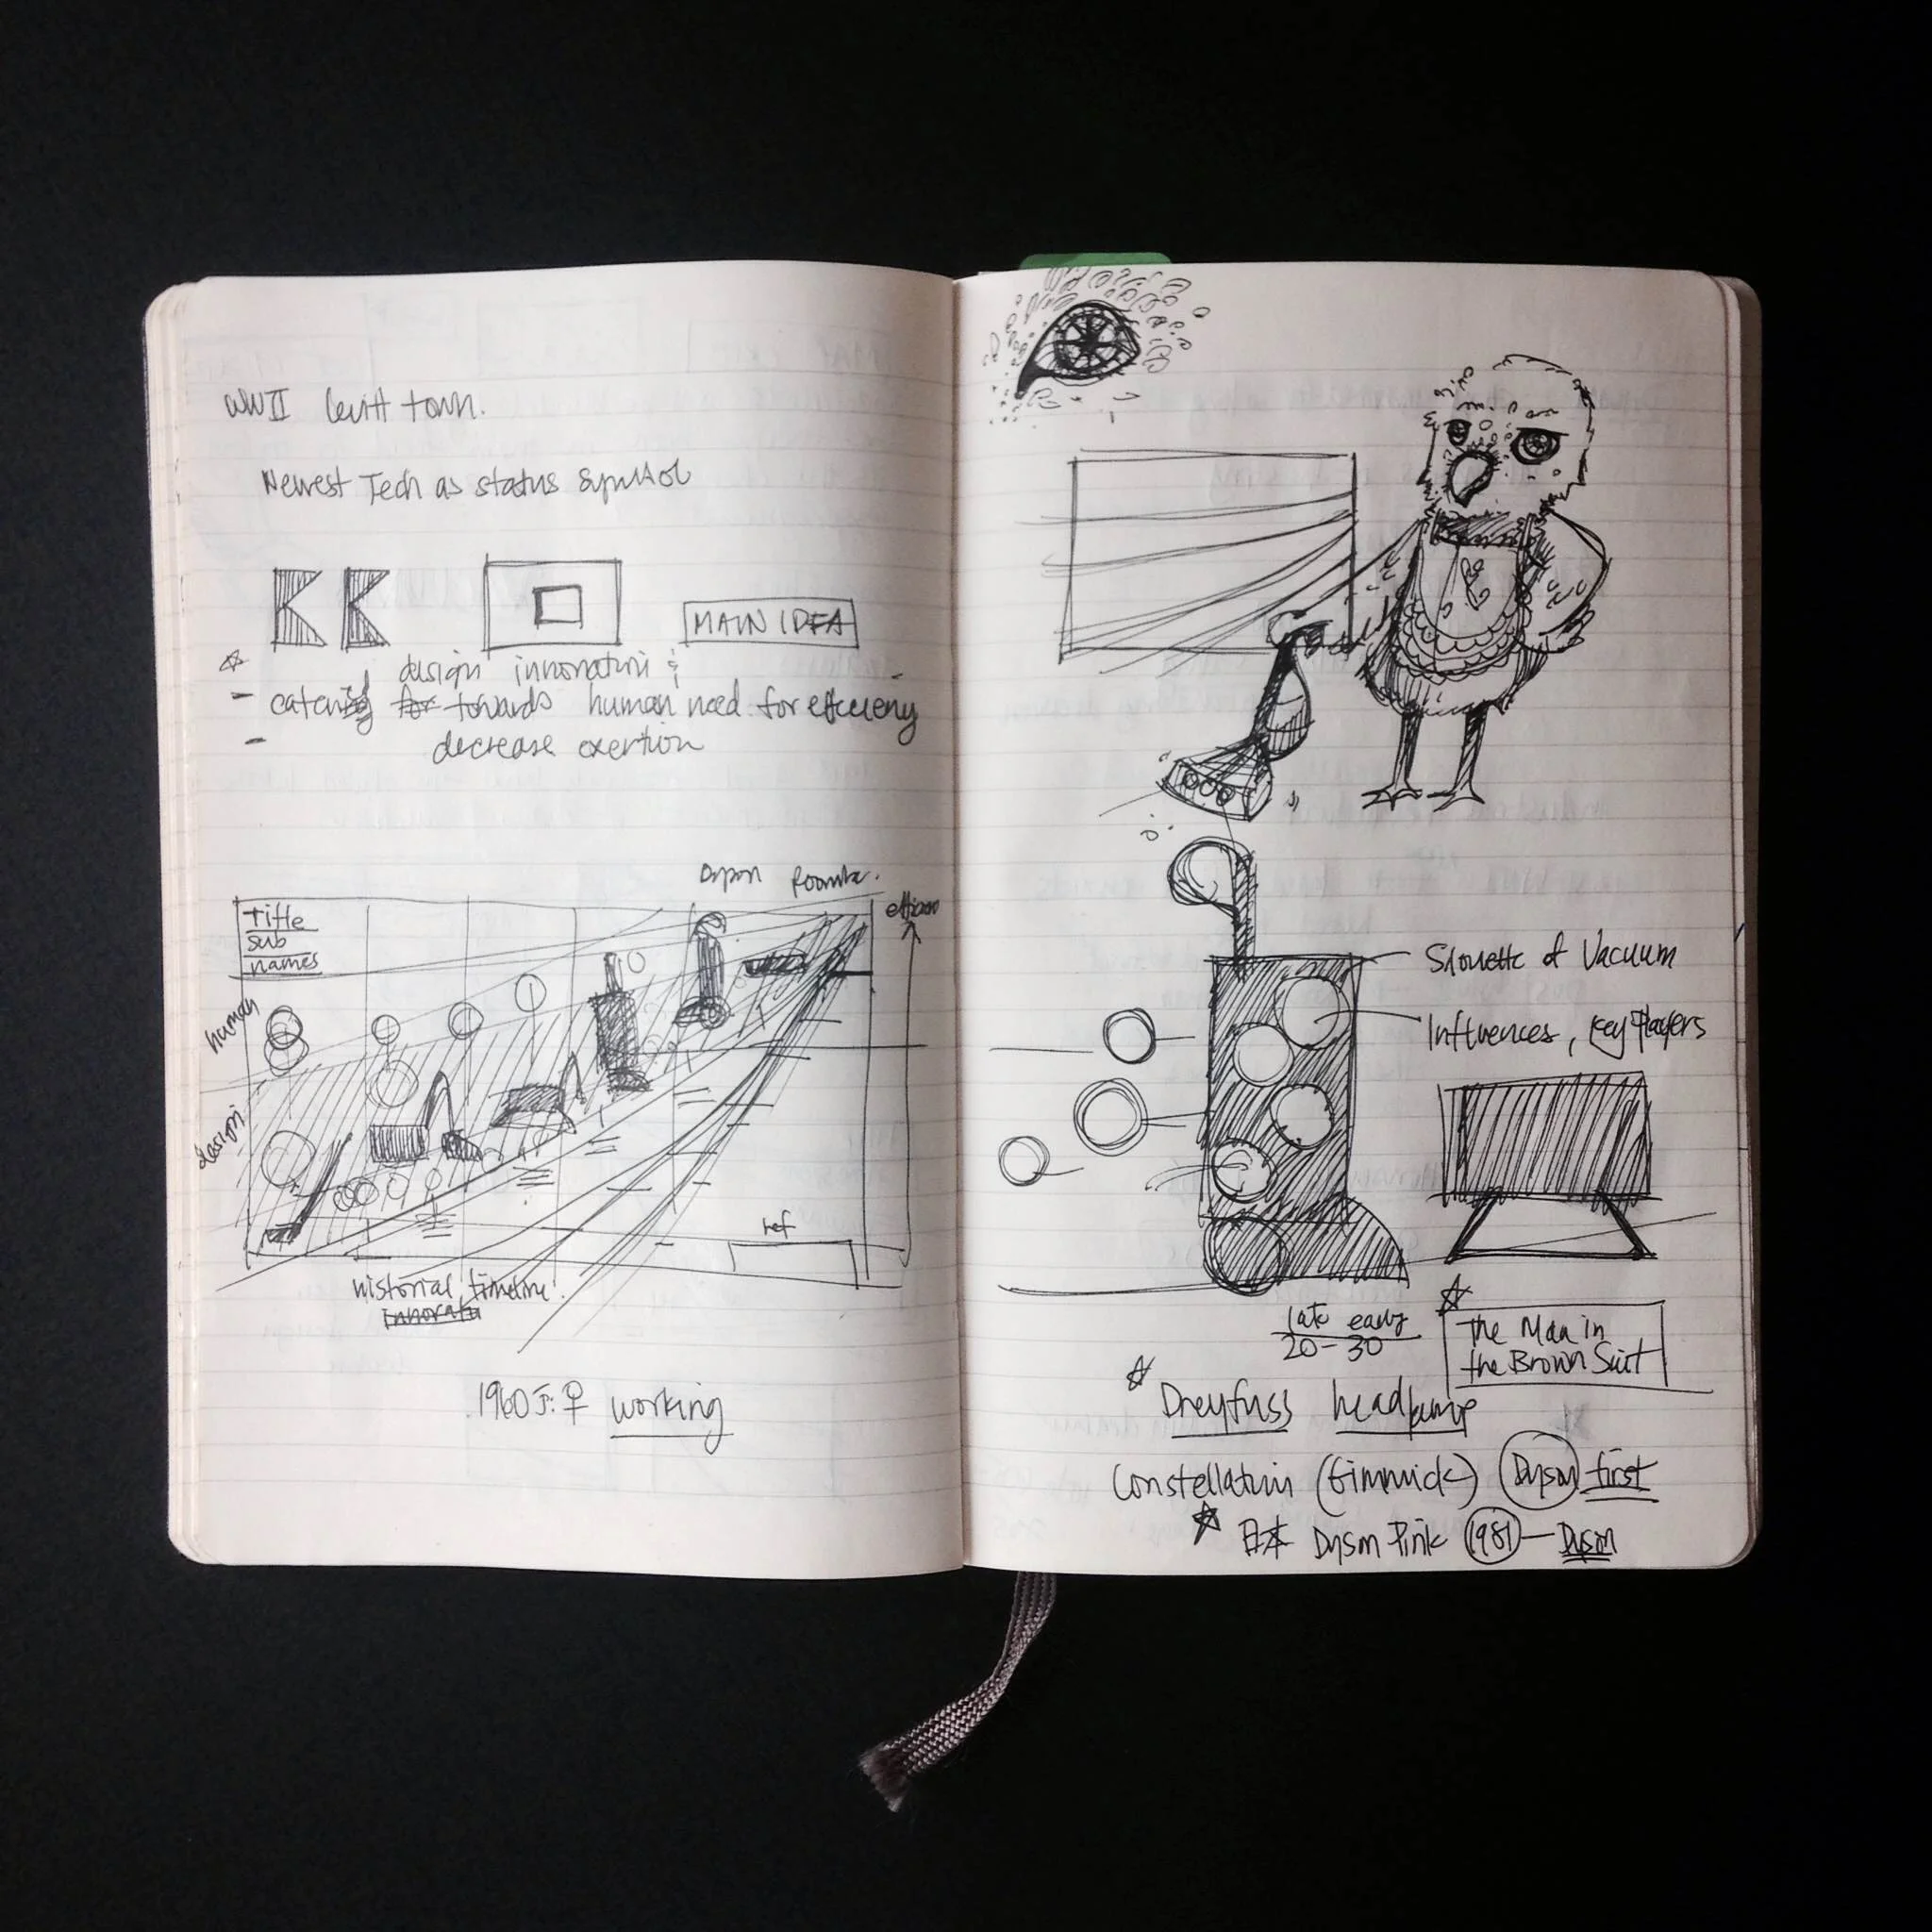 WWII levitt town.
Newest Tech as status symbol
MAIN IDEA
design innovation &
catering for towards human need for efficieny
decrease exertion
Dyson Roomba.
Title
sub
names
human
design
ref
historial timeline.
1960 : ♀ working
Silouette of Vacuum
Influences, Key Players
late early
20-30
The Man in
the Brown Suit
Dreyfuss
Constellation (Gimmick) Dyson first
日本 Dyson Pink 1981 — Dyson